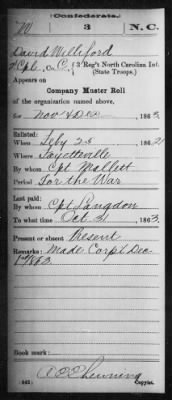 Confederate.
W 3 N.C.
David Williford
2 Cpl., Co. C, 3 Reg't North Carolina Inf.
(State Troops.)
Appears on
Company Muster Roll
of the organization named above,
for Nov & Dec, 1863
Enlisted:
When Feby 25, 186
Where Fayetteville
By whom Cpt Mallett
Period For the War
Last paid:
By whom Cpt Langdon
To what time Oct 31, 1863
Present or absent Present
Remarks: Made Corpl Dec
1 1863
Book mark:
(642) Copyist.